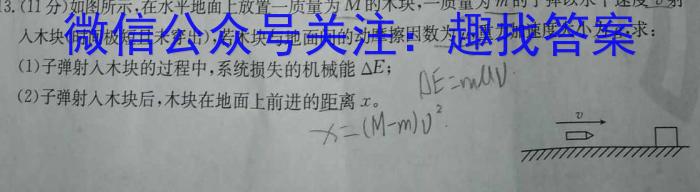 13.(11分)如图所示,在水平地面上放置一质量为M的木块,一质量为m的子弹以水平速度v射
入木块(时间极短且未穿出),若木块与地面间的动摩擦因数为
微信公众号关注：趣找答案
(1)子弹射入木块的过程中,系统损失的机械能ΔE;
(2)子弹射入木块后,木块在地面上前进的距离x。
ΔE=mUV.
x=(M-m)υ².
v